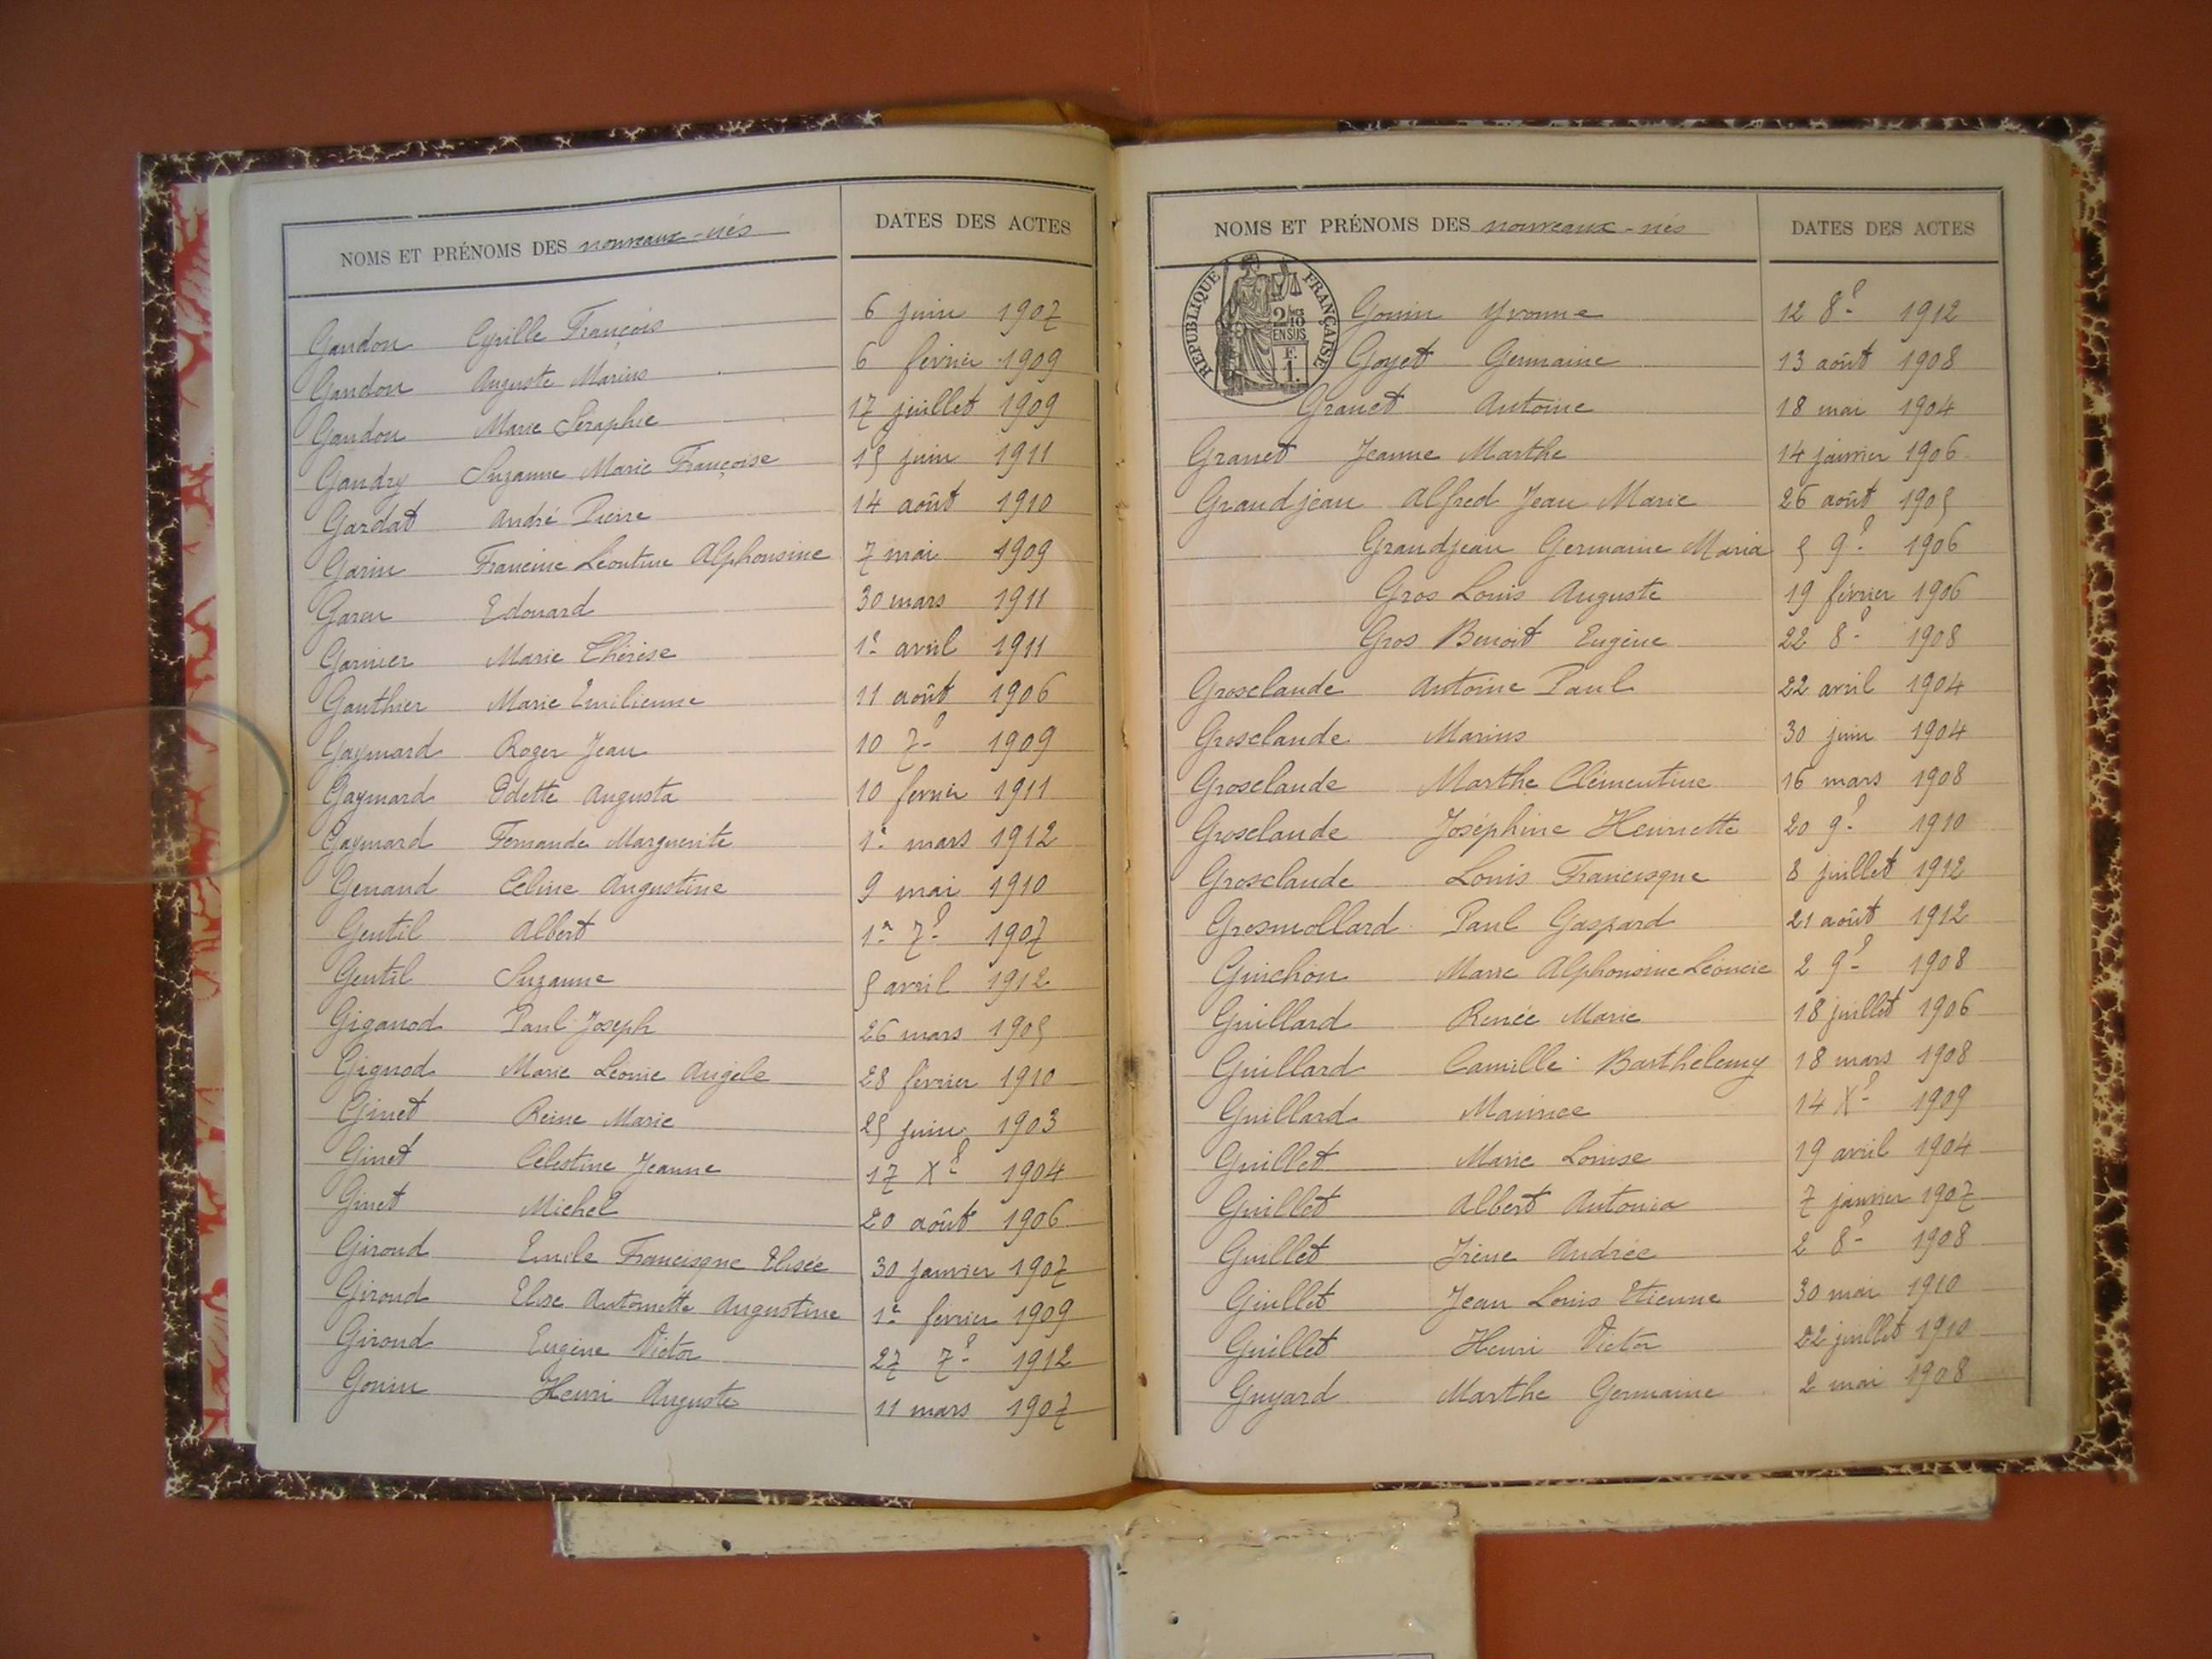 NOMS ET PRÉNOMS DES nouveaux-nés DATES DES ACTES
Gandon Cyrille François 6 juin 1907
Gandon Auguste Marius 6 février 1909
Gandon Marie Séraphie 17 juillet 1909
Gandry Suzanne Marie Françoise 15 juin 1911
Gardat André Pierre 14 août 1910
Garin Francine Léontine Alphonsine 7 mai 1909
Garon Edouard 30 mars 1911
Garnier Marie Thérèse 1er avril 1911
Gauthier Marie Emilienne 11 août 1906
Gaymard Roger Jean 10 7e 1909
Gaymard Odette Augusta 10 fevrier 1911
Gaymard Fernande Marguerite 1er mars 1912
Genand Céline Augustine 9 mai 1910
Gentil Albert 1er 7e 1907
Gentil Suzanne 5 avril 1912
Giganod Paul Joseph 26 mars 1905
Gignod Marie Léonie Angèle 28 février 1910
Ginet Reine Marie 25 juin 1903
Ginet Célestine Jeanne 17 Xe 1904
Ginet Michel 20 août 1906
Giroud Emile Francisque Elisée 30 janvier 1907
Giroud Elise Antoinette Augustine 1er février 1909
Giroud Eugène Victor 27 7e 1912
Gonin Henri Auguste 11 mars 1907
NOMS ET PRÉNOMS DES nouveaux-nés DATES DES ACTES
RÉPUBLIQUE FRANÇAISE
2/10 EN SUS
F.
1.
Gonin Yvonne 12 8e 1912
Goyet Germaine 13 août 1908
Granet Antoine 18 mai 1904
Granet Jeanne Marthe 14 janvier 1906
Grandjean Alfred Jean Marie 26 août 1905
Grandjean Germaine Maria 5 9e 1906
Gros Louis Auguste 19 février 1906
Gros Benoit Eugène 22 8e 1908
Grosclaude Antoine Paul 22 avril 1904
Grosclaude Marius 30 juin 1904
Grosclaude Marthe Clémentine 16 mars 1908
Grosclaude Joséphine Henriette 20 9e 1910
Grosclaude Louis Francisque 8 juillet 1912
Grosmollard Paul Gaspard 21 août 1912
Guichon Marie Alphonsine Léoncie 2 9e 1908
Guillard Renée Marie 18 juillet 1906
Guillard Camille Barthélemy 18 mars 1908
Guillard Maurice 14 Xe 1909
Guillet Marie Louise 19 avril 1904
Guillet Albert Antonia 7 janvier 1907
Guillet Irène Andrée 2 8e 1908
Guillet Jean Louis Etienne 30 mai 1910
Guillet Henri Victor 22 juillet 1910
Guyard Marthe Germaine 2 mai 1908